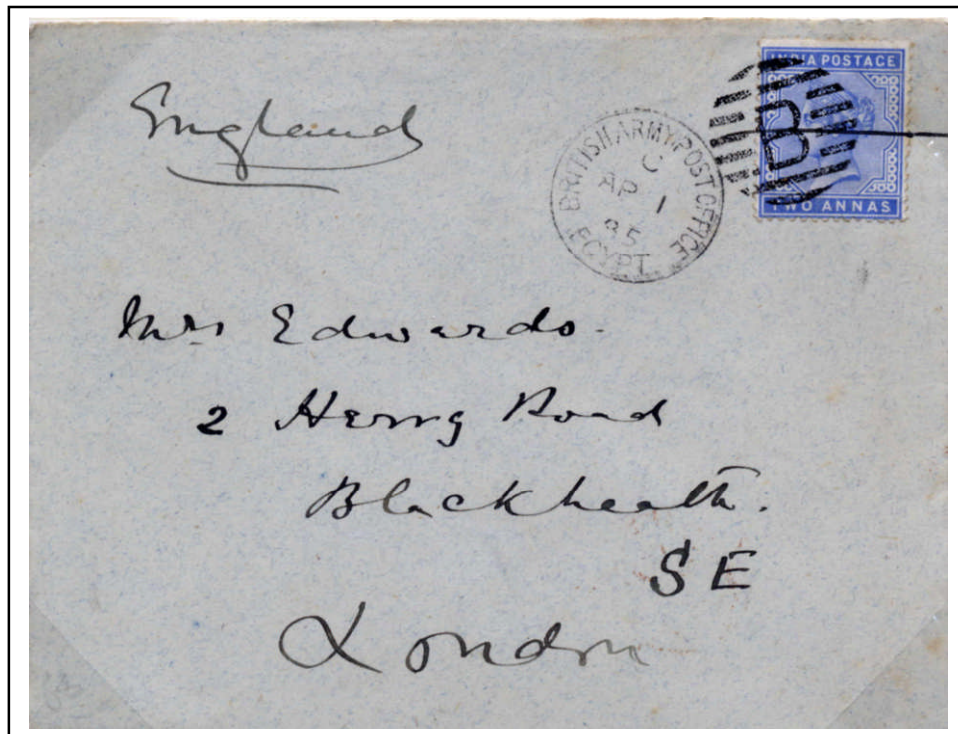 England
INDIA POSTAGE
B
TWO ANNAS
BRITISH ARMY POST OFFICE
C
AP 1
85
EGYPT
Mrs Edwards.
2 Road
Blackheath.
SE
London